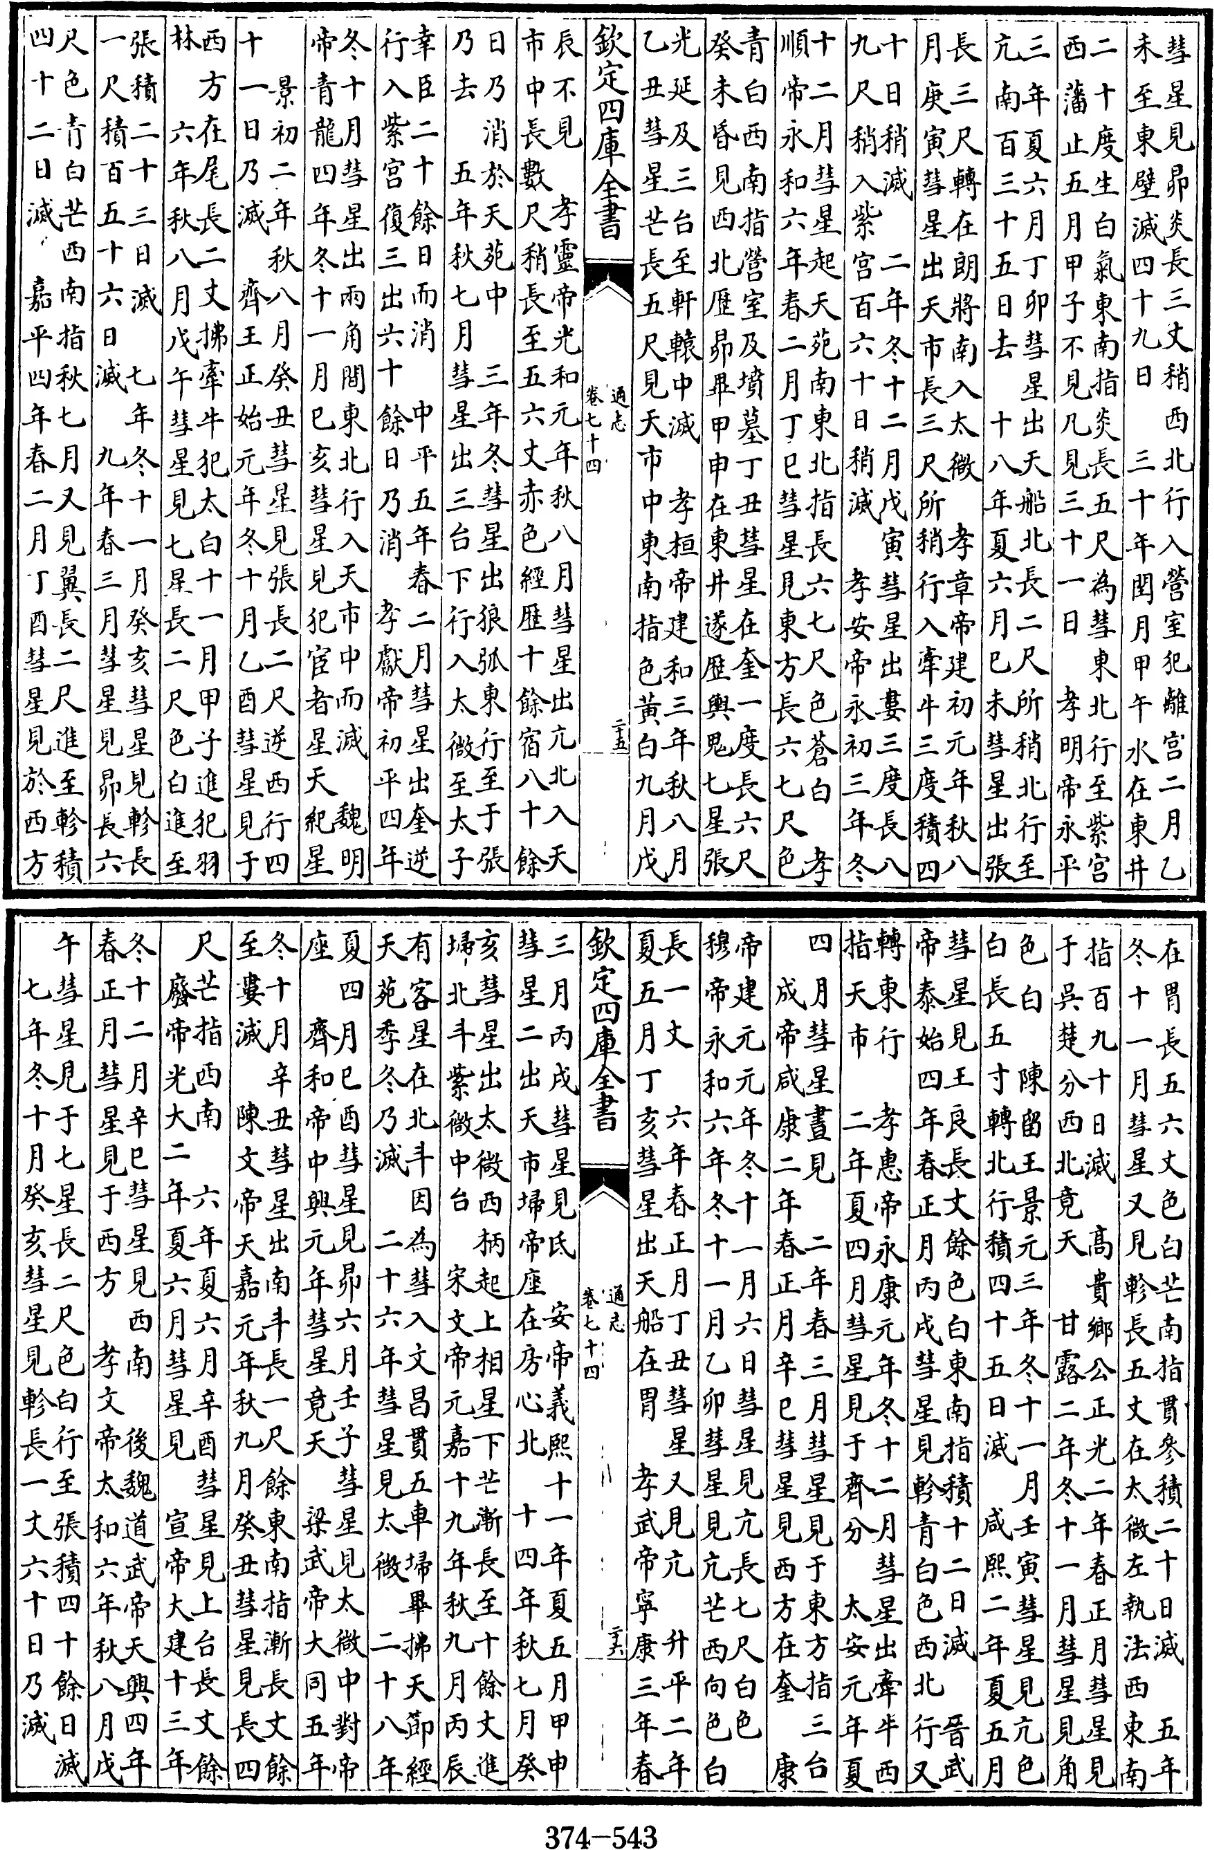 彗星見昴炎長三丈稍西北行入營室犯離宮二月乙
未至東壁滅四十九日　三十年閏月甲午水在東井
二十度生白氣東南指炎長五尺為彗東北行至紫宮
西藩止五月甲子不見凡見三十一日　孝明帝永平
三年夏六月丁卯彗星出天船北長二尺所稍北行至
亢南百三十五日去　十八年夏六月己未彗星出張
長三尺轉在朗將南入太微　孝章帝建初元年秋八
月庚寅彗星出天市長三尺所稍行入牽牛三度積四
十日稍滅　二年冬十二月戊寅彗星出婁三度長八
九尺稍入紫宮百六十日稍滅　孝安帝永初三年冬
十二月彗星起天苑南東北指長六七尺色蒼白　孝
順帝永和六年春二月丁巳彗星見東方長六七尺色
青白西南指營室及墳墓丁丑彗星在奎一度長六尺
癸未昏見西北歷昴畢甲申在東井遂歷輿鬼七星張
光延及三台至軒轅中滅　孝桓帝建和三年秋八月
乙丑彗星芒長五尺見天市中東南指色黃白九月戊
欽定四庫全書
通志
卷七十四
二十五
辰不見　孝靈帝光和元年秋八月彗星出亢北入天
市中長數尺稍長至五六丈赤色經歷十餘宿八十餘
日乃消於天苑中　三年冬彗星出狼弧東行至于張
乃去　五年秋七月彗星出三台下行入太微至太子
幸臣二十餘日而消　中平五年春二月彗星出奎逆
行入紫宮復三出六十餘日乃消　孝獻帝初平四年
冬十月彗星出兩角間東北行入天市中而滅　魏明
帝青龍四年冬十一月己亥彗星見犯宦者星天紀星
景初二年秋八月癸丑彗星見張長二尺逆西行四
十一日乃滅　齊王正始元年冬十月乙酉彗星見于
西方在尾長二丈拂牽牛犯太白十一月甲子進犯羽
林　六年秋八月戊午彗星見七星長二尺色白進至
張積二十三日滅　七年冬十一月癸亥彗星見軫長
一尺積百五十六日滅　九年春三月彗星見昴長六
尺色青白芒西南指秋七月又見翼長二尺進至軫積
四十二日滅　嘉平四年春二月丁酉彗星見於西方
在胃長五六丈色白芒南指貫參積二十日滅　五年
冬十一月彗星又見軫長五丈在太微左執法西東南
指百九十日滅　高貴鄉公正光二年春正月彗星見
于吳楚分西北竟天　甘露二年冬十一月彗星見角
色白　陳留王景元三年冬十一月壬寅彗星見亢色
白長五寸轉北行積四十五日滅　咸熙二年夏五月
彗星見王良長丈餘色白東南指積十二日滅　晉武
帝泰始四年春正月丙戌彗星見軫青白色西北行又
轉東行　孝惠帝永康元年冬十二月彗星出牽牛西
指天市　二年夏四月彗星見于齊分　太安元年夏
四月彗星晝見　二年春三月彗星見于東方指三台
成帝咸康二年春正月辛巳彗星見西方在奎　康
帝建元元年冬十一月六日彗星見亢長七尺白色
穆帝永和六年冬十一月乙卯彗星見亢芒西向色白
長一丈　六年春正月丁丑彗星又見亢　升平二年
夏五月丁亥彗星出天船在胃　孝武帝寧康三年春
欽定四庫全書
通志
卷七十四
二十六
三月丙戌彗星見氐　安帝義熙十一年夏五月甲申
彗星二出天市埽帝座在房心北　十四年秋七月癸
亥彗星出太微西柄起上相星下芒漸長至十餘丈進
埽北斗紫微中台　宋文帝元嘉十九年秋九月丙辰
有客星在北斗因為彗入文昌貫五車埽畢拂天節經
天苑季冬乃滅　二十六年彗星見太微　二十八年
夏四月己酉彗星見昴六月壬子彗星見太微中對帝
座　齊和帝中興元年彗星竟天　梁武帝大同五年
冬十月辛丑彗星出南斗長一尺餘東南指漸長丈餘
至婁滅　陳文帝天嘉元年秋九月癸丑彗星見長四
尺芒指西南　六年夏六月辛酉彗星見上台長丈餘
廢帝光大二年夏六月彗星見　宣帝大建十三年
冬十二月辛巳彗星見西南　後魏道武帝天興四年
春正月彗星見于西方　孝文帝太和六年秋八月戊
午彗星見于七星長二尺色白行至張積四十餘日滅
七年冬十月癸亥彗星見軫長一丈六十日乃滅
374-543